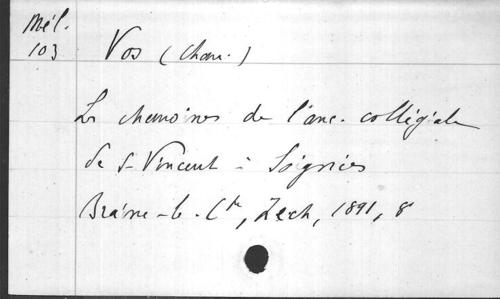 Mél.
103
Vos (Chan.)
Les chanoines de l'anc. collégiale
de St-Vincent à Soignies
Braine-le-Cte, Zech, 1891, 8°